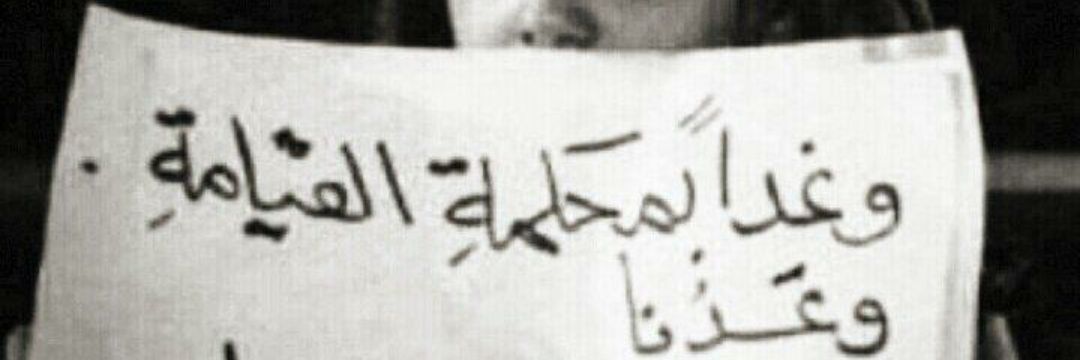 وغداً بمحكمةِ القيامةِ .
وعَـــدُنا